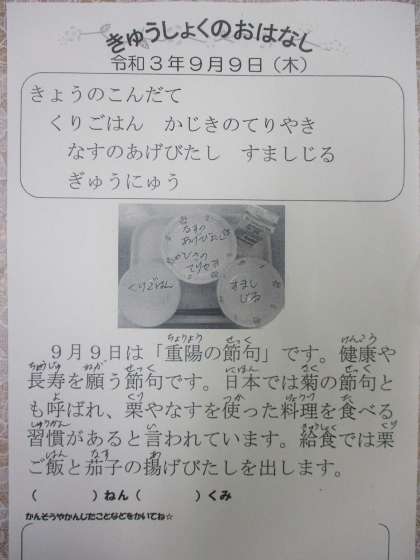 きゅうしょくのおはなし
令和3年9月9日（木）
きょうのこんだて
くりごはん　かじきのてりやき
なすのあげびたし　すましじる
ぎゅうにゅう
なすの
あげびたし
てりやき
くりごはん
すまし
じる
9月9日は「重陽の節句」です。健康や
長寿を願う節句です。日本では菊の節句と
も呼ばれ、栗やなすを使った料理を食べる
習慣があると言われています。給食では栗
ご飯と茄子の揚げびたしを出します。
（　　　　）ねん（　　　　）くみ
かんそうやかんじたことなどをかいてね☆